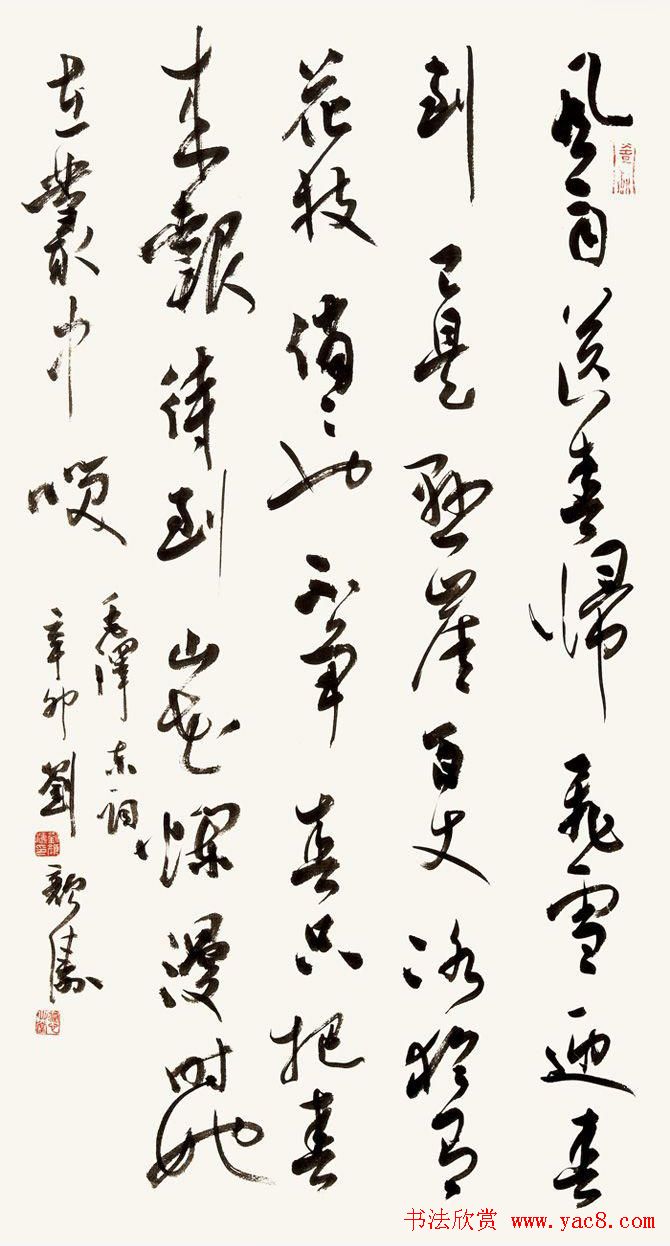 風雨送春歸飛雪迎春
到已是懸崖百丈冰猶有
花枝俏〻也不爭春只把春
來報待到山花爛漫時她
在叢中咲
毛澤東詞
辛卯劉顏濤
书法欣赏 www.yac8.com